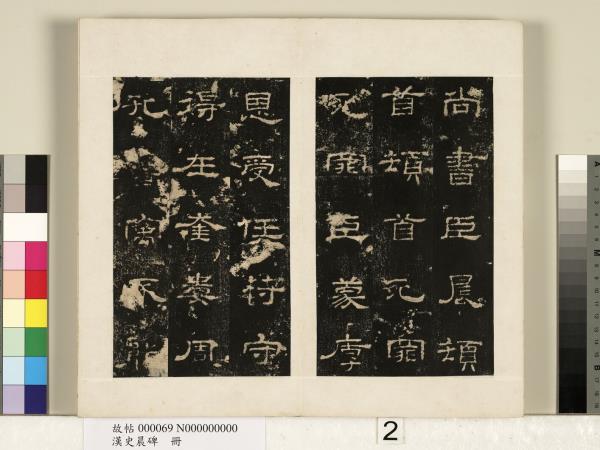 尚書臣晨頓
首頓首死罪
死罪臣蒙厚
恩受任符守
得在奎婁周
孔舊寓不能
故帖 000069 N000000000
漢史晨碑 冊
2
A
M
B